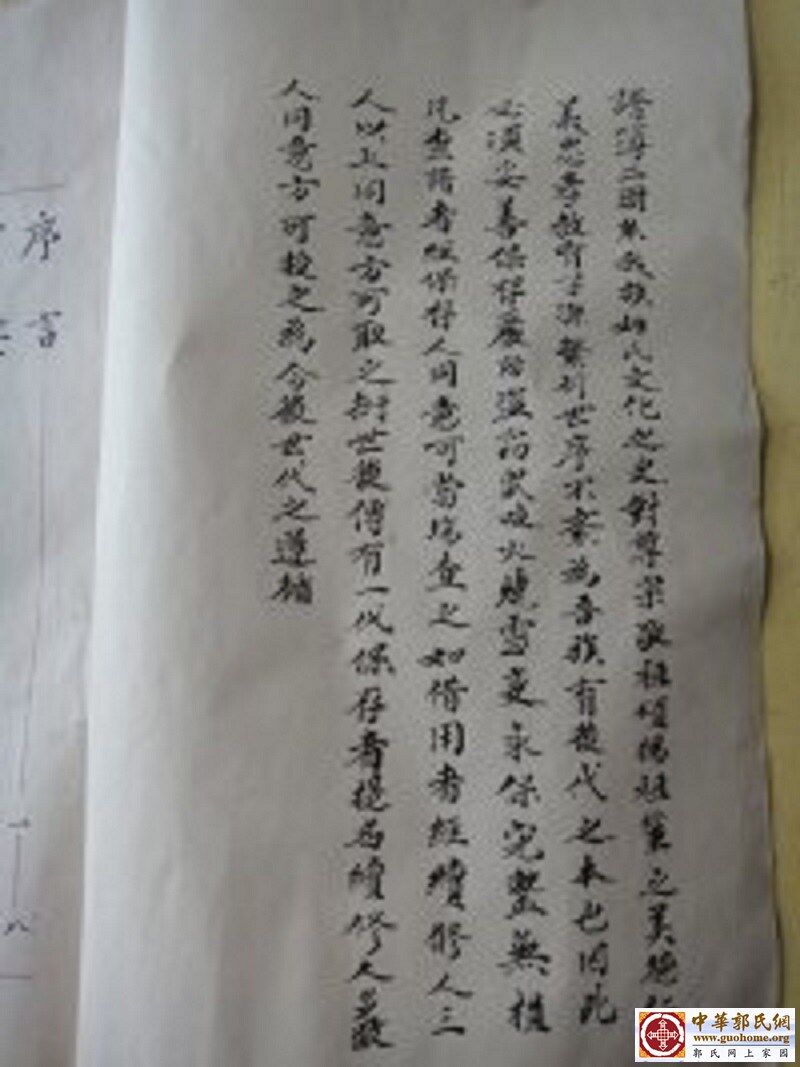 譜簿二冊系我族郭氏文化之史對尊崇敬祖頌揚祖業之美德
義忠孝教育子孫繁衍世序不紊為吾族有後代之本也因此
必須妥善保存嚴防盜竊鼠咬火燒雪变永保完整無損
凡查譜者經保存人同意可當場查之如借用者經續修人三
人以上同意方可取之衍世後傳有一代保存者提名續修人
人同意方可授之為今後世代之遵循
序言
一
八
中華郭氏網
www.guohome.org
郭氏网上家园